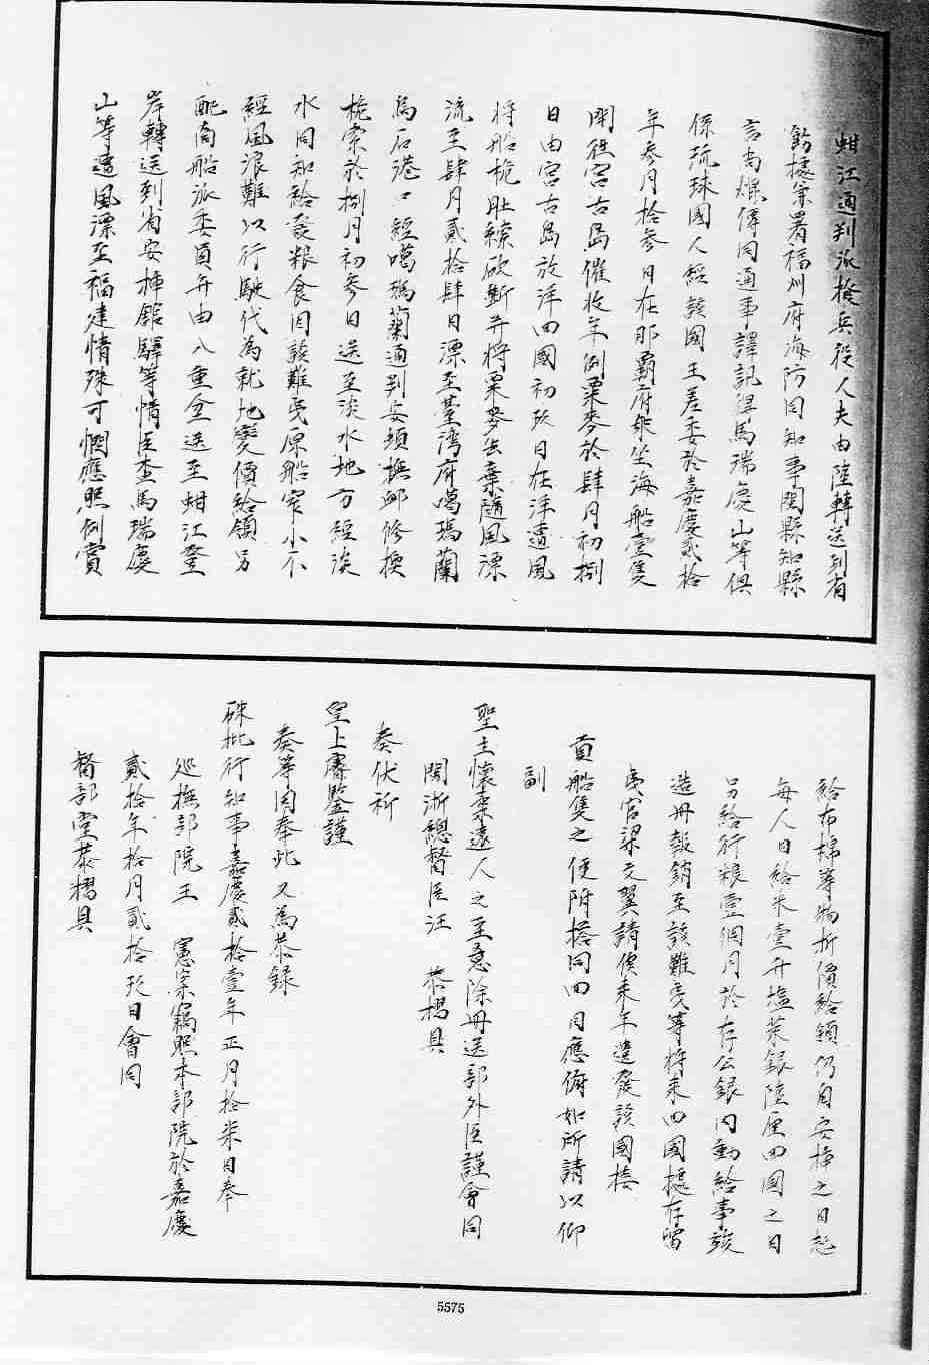 蚶江通判派撥兵役人夫由陸轉送到省
飭據葉署福州府海防同知事閩縣知縣
言尚煒傳同通事譯訊得馬瑞慶山等俱
係琉球國人經該國王差委於嘉慶貳拾
年參月拾參日在那霸府駕坐海船壹隻
開徃宮古島催收年例粟麥於肆月初捌
日由宮古島放洋囬國初玖日在洋遭風
將船桅肚縤砍斷并將粟麥丟棄隨風漂
流至肆月貳拾肆日漂至臺湾府噶瑪蘭
烏石港口經噶瑪蘭通判安頓撫卹修換
桅索於捌月初參日送至淡水地方經淡
水同知給發粮食因該難夷原船窄小不
經風浪難以行駛代為就地變價給領另
配商船派委員弁由八重坌送至蚶江登
岸轉送到省安揷館驛等情臣查馬瑞慶
山等遭風漂至福建情殊可憫應照例賞
給布棉等物折價給領仍自安揷之日起
每人日給米壹升塩菜銀陸厘囬國之日
另給行粮壹個月於存公銀內動給事竣
造册報銷至該難夷等將來囬國據存留
夷官梁文翼請俟来年遣發該國接
貢船隻之便附搭同囬應俯如所請以仰
副
聖主懷柔遠人之至意除册送部外臣謹會同
閩浙總督臣汪 恭摺具
奏伏祈
皇上睿鑒謹
奏等因奉此又為恭錄
硃批行知事嘉慶貳拾壹年正月拾柒日奉
廵撫部院王 憲案竊照本部院於嘉慶
貳拾年拾月貳拾玖日會同
督部堂恭摺具
5575